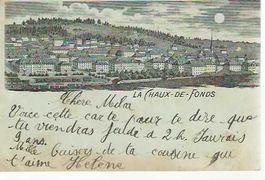 LA CHAUX-DE-FONDS
Chère
Voice cette carte pour te dire que
tu viendras à 2 h.
9 ans.
Mille baisers de ta cousine qui
t'aime Hélène